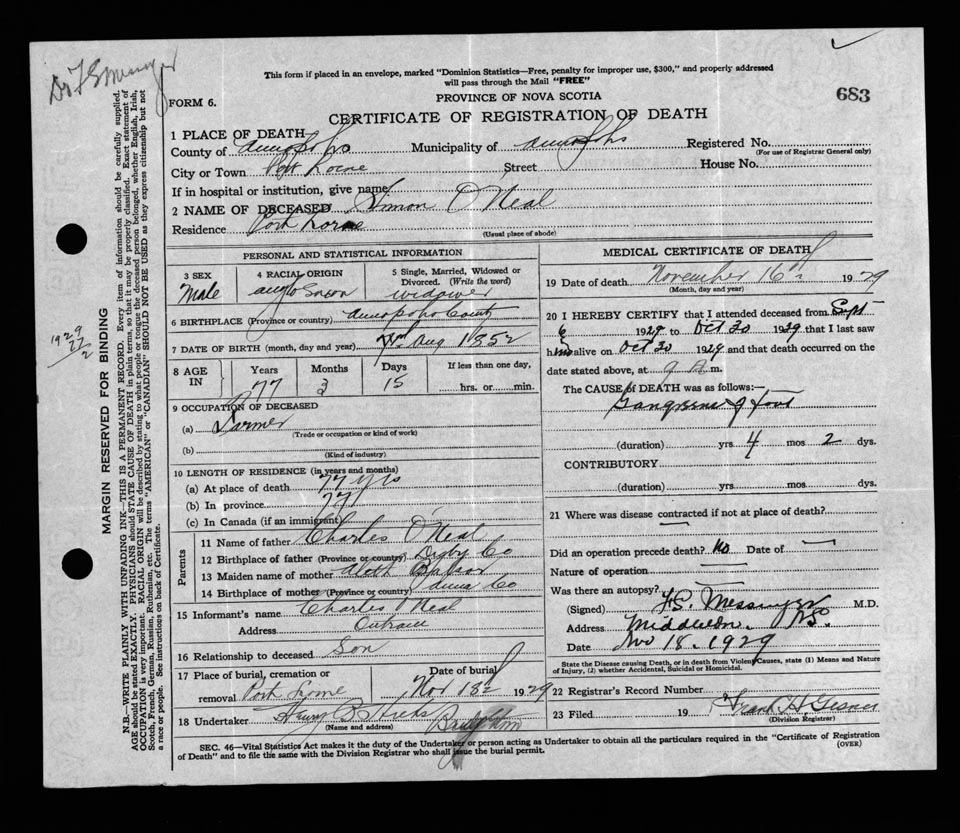 Dr F S Messinger
This form if placed in an envelope, marked "Dominion Statistics—Free, penalty for improper use, $300," and properly addressed
will pass through the Mail "FREE"
683
PROVINCE OF NOVA SCOTIA
FORM 6.
CERTIFICATE OF REGISTRATION OF DEATH
1 PLACE OF DEATH
County of Annapolis Municipality of Annapolis Registered No.
(For use of Registrar General only)
City or Town Port Lorne Street House No.
If in hospital or institution, give name
2 NAME OF DECEASED Simon O'Neal
Residence Port Lorne
(Usual place of abode)
PERSONAL AND STATISTICAL INFORMATION
3 SEX 4 RACIAL ORIGIN 5 Single, Married, Widowed or
Divorced. (Write the word)
Male anglo Saxon widower
6 BIRTHPLACE (Province or country) Annapolis County
7 DATE OF BIRTH (month, day and year) Aug 1852
8 AGE IN Years Months Days If less than one day,
77 3 15 hrs. or min.
9 OCCUPATION OF DECEASED
(a) Farmer
(Trade or occupation or kind of work)
(b)
(Kind of industry)
10 LENGTH OF RESIDENCE (in years and months)
(a) At place of death 77 yrs
(b) In province 77
(c) In Canada (if an immigrant)
Parents
11 Name of father Charles O'Neal
12 Birthplace of father (Province or country) Digby Co
13 Maiden name of mother
14 Birthplace of mother (Province or country) Anna Co
15 Informant's name Charles O'Neal
Address Outram
16 Relationship to deceased Son
17 Place of burial, cremation or Date of burial
removal Port Lorne Nov 18th 1929
18 Undertaker Henry B Hicks
(Name and address)
MEDICAL CERTIFICATE OF DEATH
19 Date of death November 16th 1929
(Month, day and year)
20 I HEREBY CERTIFY that I attended deceased from Sept
6 1929 to Oct 30 1929 that I last saw
him alive on Oct 30 1929 and that death occurred on
date stated above, at 9 a m.
The CAUSE of DEATH was as follows:—
Gangrene of foot
(duration) yrs 4 mos 2 dys.
CONTRIBUTORY
(duration) yrs. mos. dys.
21 Where was disease contracted if not at place of death?
Did an operation precede death? No Date of —
Nature of operation —
Was there an autopsy? —
(Signed) F.S. Messinger M.D.
Address Middleton. N.S.
Date Nov 18. 1929
State the Disease causing Death, or in death from Violent Causes, state (1) Means and Nature
of Injury, (2) whether Accidental, Suicidal or Homicidal.
22 Registrar's Record Number
23 Filed 19 Frank H Gesner
(Division Registrar)
SEC. 46—Vital Statistics Act makes it the duty of the Undertaker or person acting as Undertaker to obtain all the particulars required in the "Certificate of Registration
of Death" and to file the same with the Division Registrar who shall issue the burial permit.
(OVER)
MARGIN RESERVED FOR BINDING
N.B.—WRITE PLAINLY WITH UNFADING INK—THIS IS A PERMANENT RECORD. Every item of information should be carefully supplied.
AGE should be stated EXACTLY. PHYSICIANS should STATE CAUSE OF DEATH in plain terms, so that it may be properly classified. Exact statement of
OCCUPATION is very important. RACIAL ORIGIN will be described by stating to what people or tongue the deceased person belonged, whether English, Irish,
Scotch, French, German, Russian, Ruthenian, etc. The terms "AMERICAN" or "CANADIAN" SHOULD NOT BE USED as they express citizenship but not
a race or people. See instructions on back of Certificate.
1929
77
2